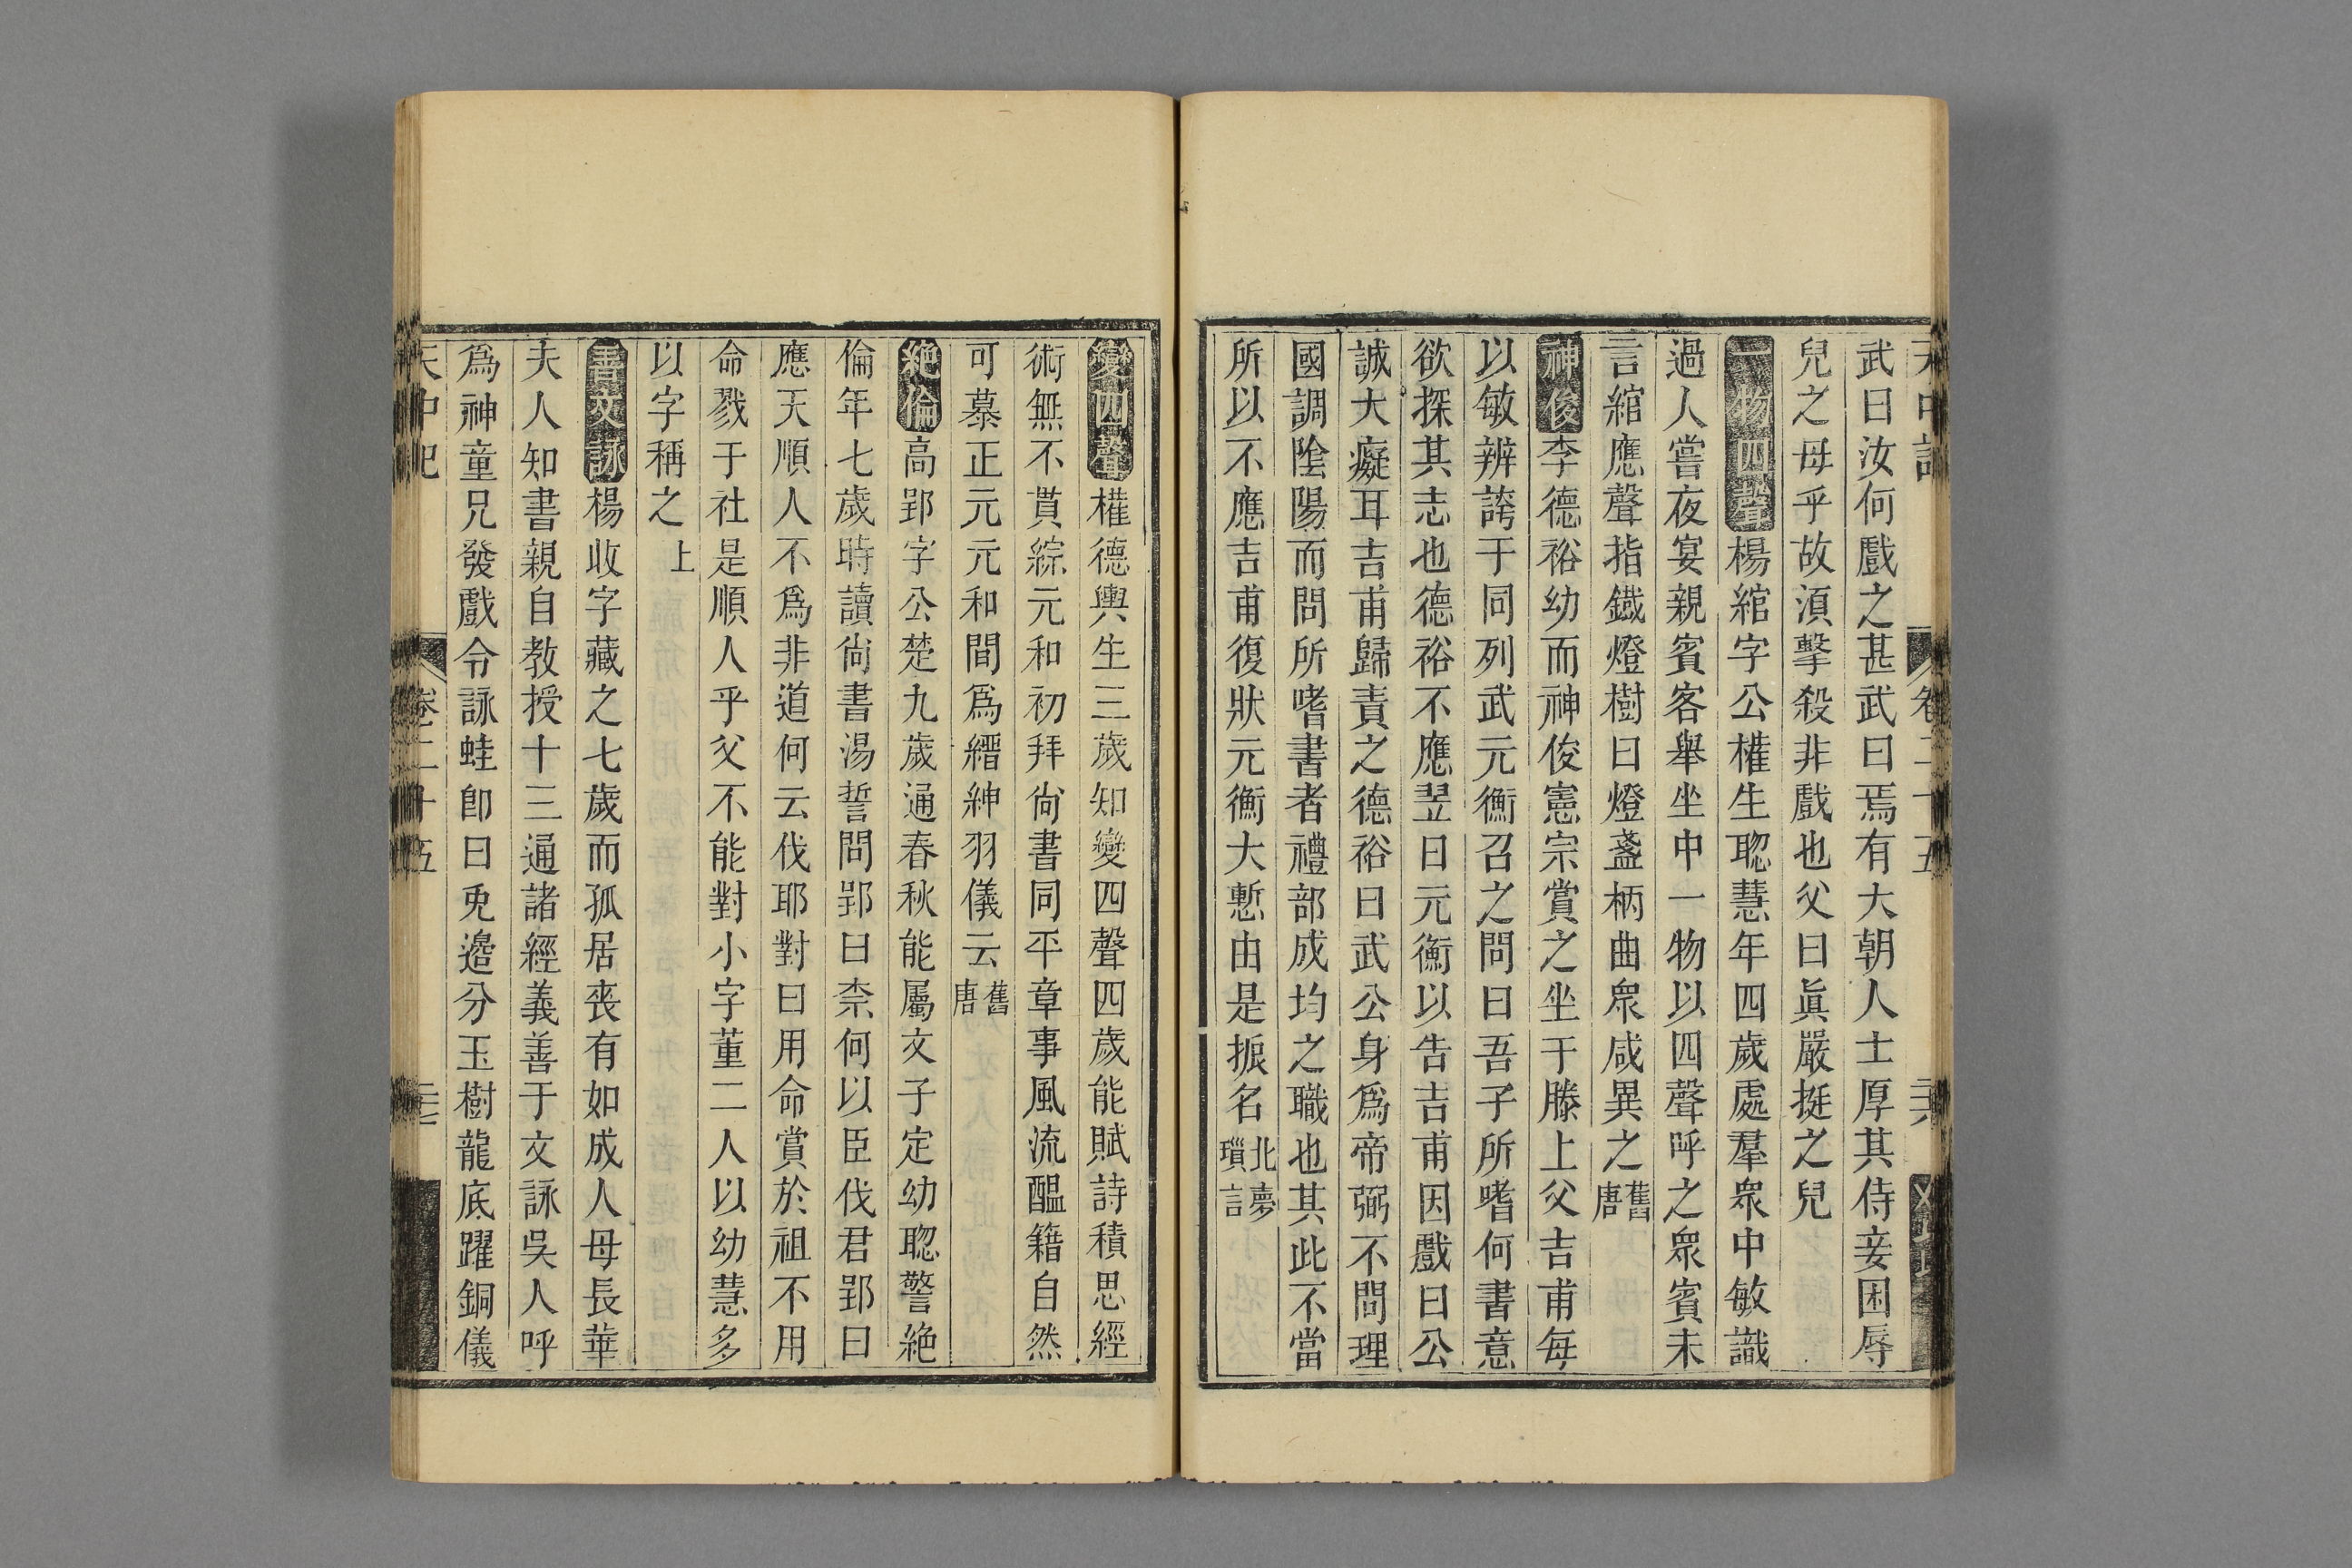 天中記 卷二十五 二六
武曰汝何戲之甚武曰焉有大朝人士厚其侍妾困辱
兒之母乎故湏擊殺非戲也父曰眞嚴挺之兒
一物四聲楊綰字公權生聦慧年四歲處羣衆中敏識
過人嘗夜宴親賓客舉坐中一物以四聲呼之衆賓未
言綰應聲指鐵燈樹曰燈盞柄曲衆咸異之舊唐
神俊李德裕幼而神俊憲宗賞之坐于膝上父吉甫每
以敏辨誇于同列武元衡召之問曰吾子所嗜何書意
欲探其志也德裕不應翌日元衡以告吉甫因戲曰公
誠大癡耳吉甫歸責之德裕曰武公身爲帝弼不問理
國調陰陽而問所嗜書者禮部成均之職也其此不當
所以不應吉甫復狀元衡大慙由是振名北夢瑣言
變四聲權德輿生三歲知變四聲四歲能賦詩積思經
術無不貫綜元和初拜尚書同平章事風流醞籍自然
可慕正元元和間爲縉紳羽儀云舊唐
絶倫高郢字公楚九歲通春秋能屬文子定幼聦警絶
倫年七歲時讀尚書湯誓問郢曰柰何以臣伐君郢曰
應天順人不爲非道何云伐耶對曰用命賞於祖不用
命戮于社是順人乎父不能對小字董二人以幼慧多
以字稱之上
善文詠楊收字藏之七歲而孤居喪有如成人母長華
夫人知書親自教授十三通諸經義善于文詠吳人呼
爲神童兄發戲令詠蛙卽曰兎邉分玉樹龍底躍銅儀
天中記 卷二十五 二七